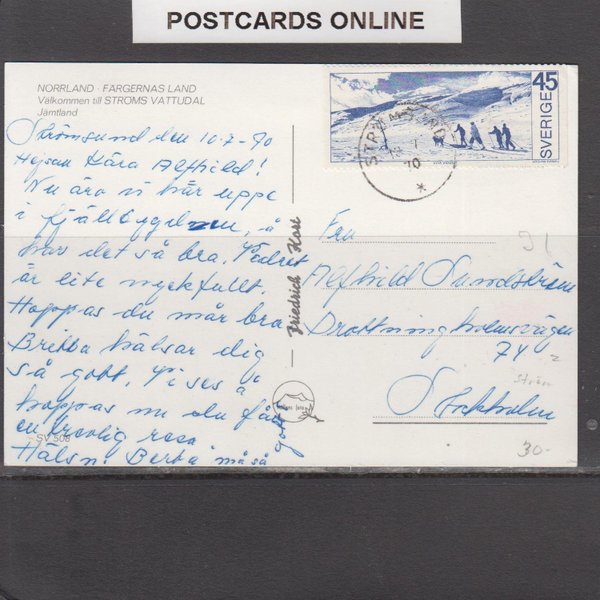 POSTCARDS ONLINE
NORRLAND - FÄRGERNAS LAND
Välkommen till STRÖMS VATTUDAL
Jämtland
45
SVERIGE
STRÖMSUND
Strömsund den 10-7-70
Hejsan Kära Alfhild!
Nu äro vi här uppe
i fjällbygden, å
har det så bra. Vädret
är lite nyckfullt.
Hoppas du mår bra
Britta hälsar dig
så gott. Vi ses å
hoppas nu du får
en trevlig resa
Hälsn. Berta må så
gott
SV 508
Friedrich Karl
Fru
Alfhild Sundström
Drottningholmsvägen
74
Stockholm
30-